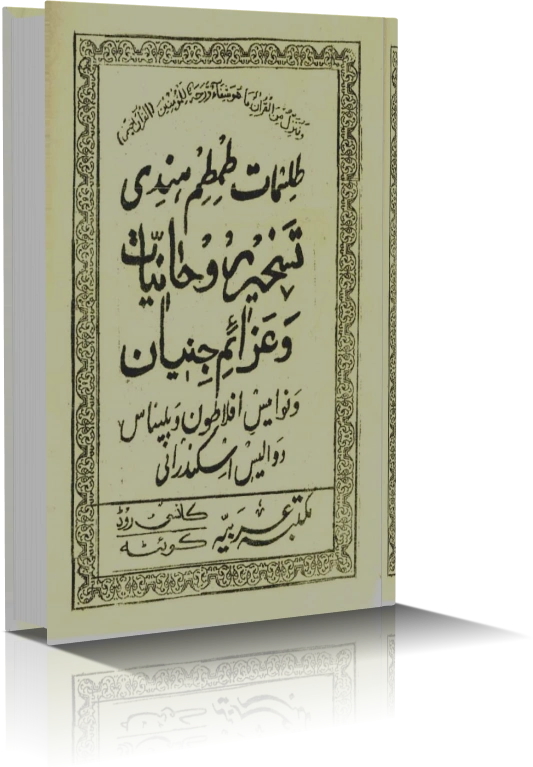 وننزل من القرآن ما هو شفاء ورحمة للمؤمنين (القرآن
طلسمات طمطم هندی
تسخیر روحانیات
وَعَزائمِ جِنیان
و نوامیس افلاطون و بلیناس
و والیس اسکندرانی
مکتبه عربیه
کانسی روڈ
کوئٹه